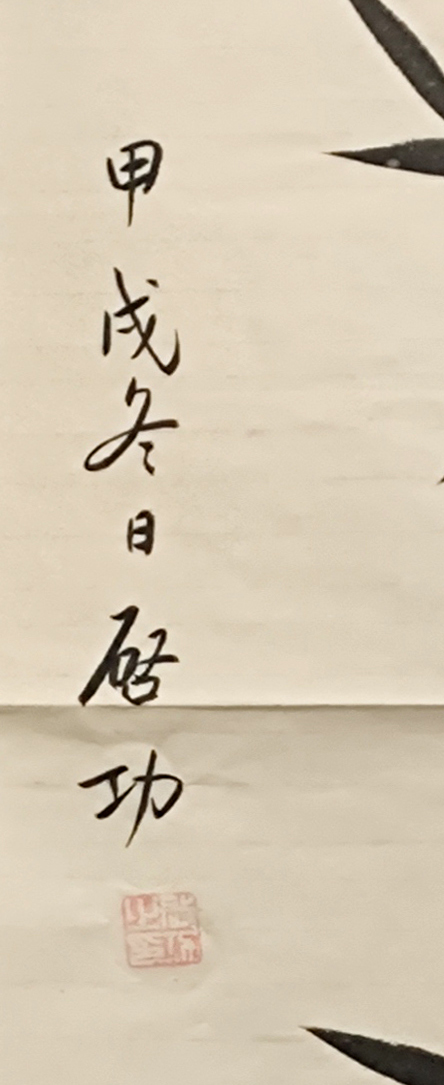 甲戌冬日啟功